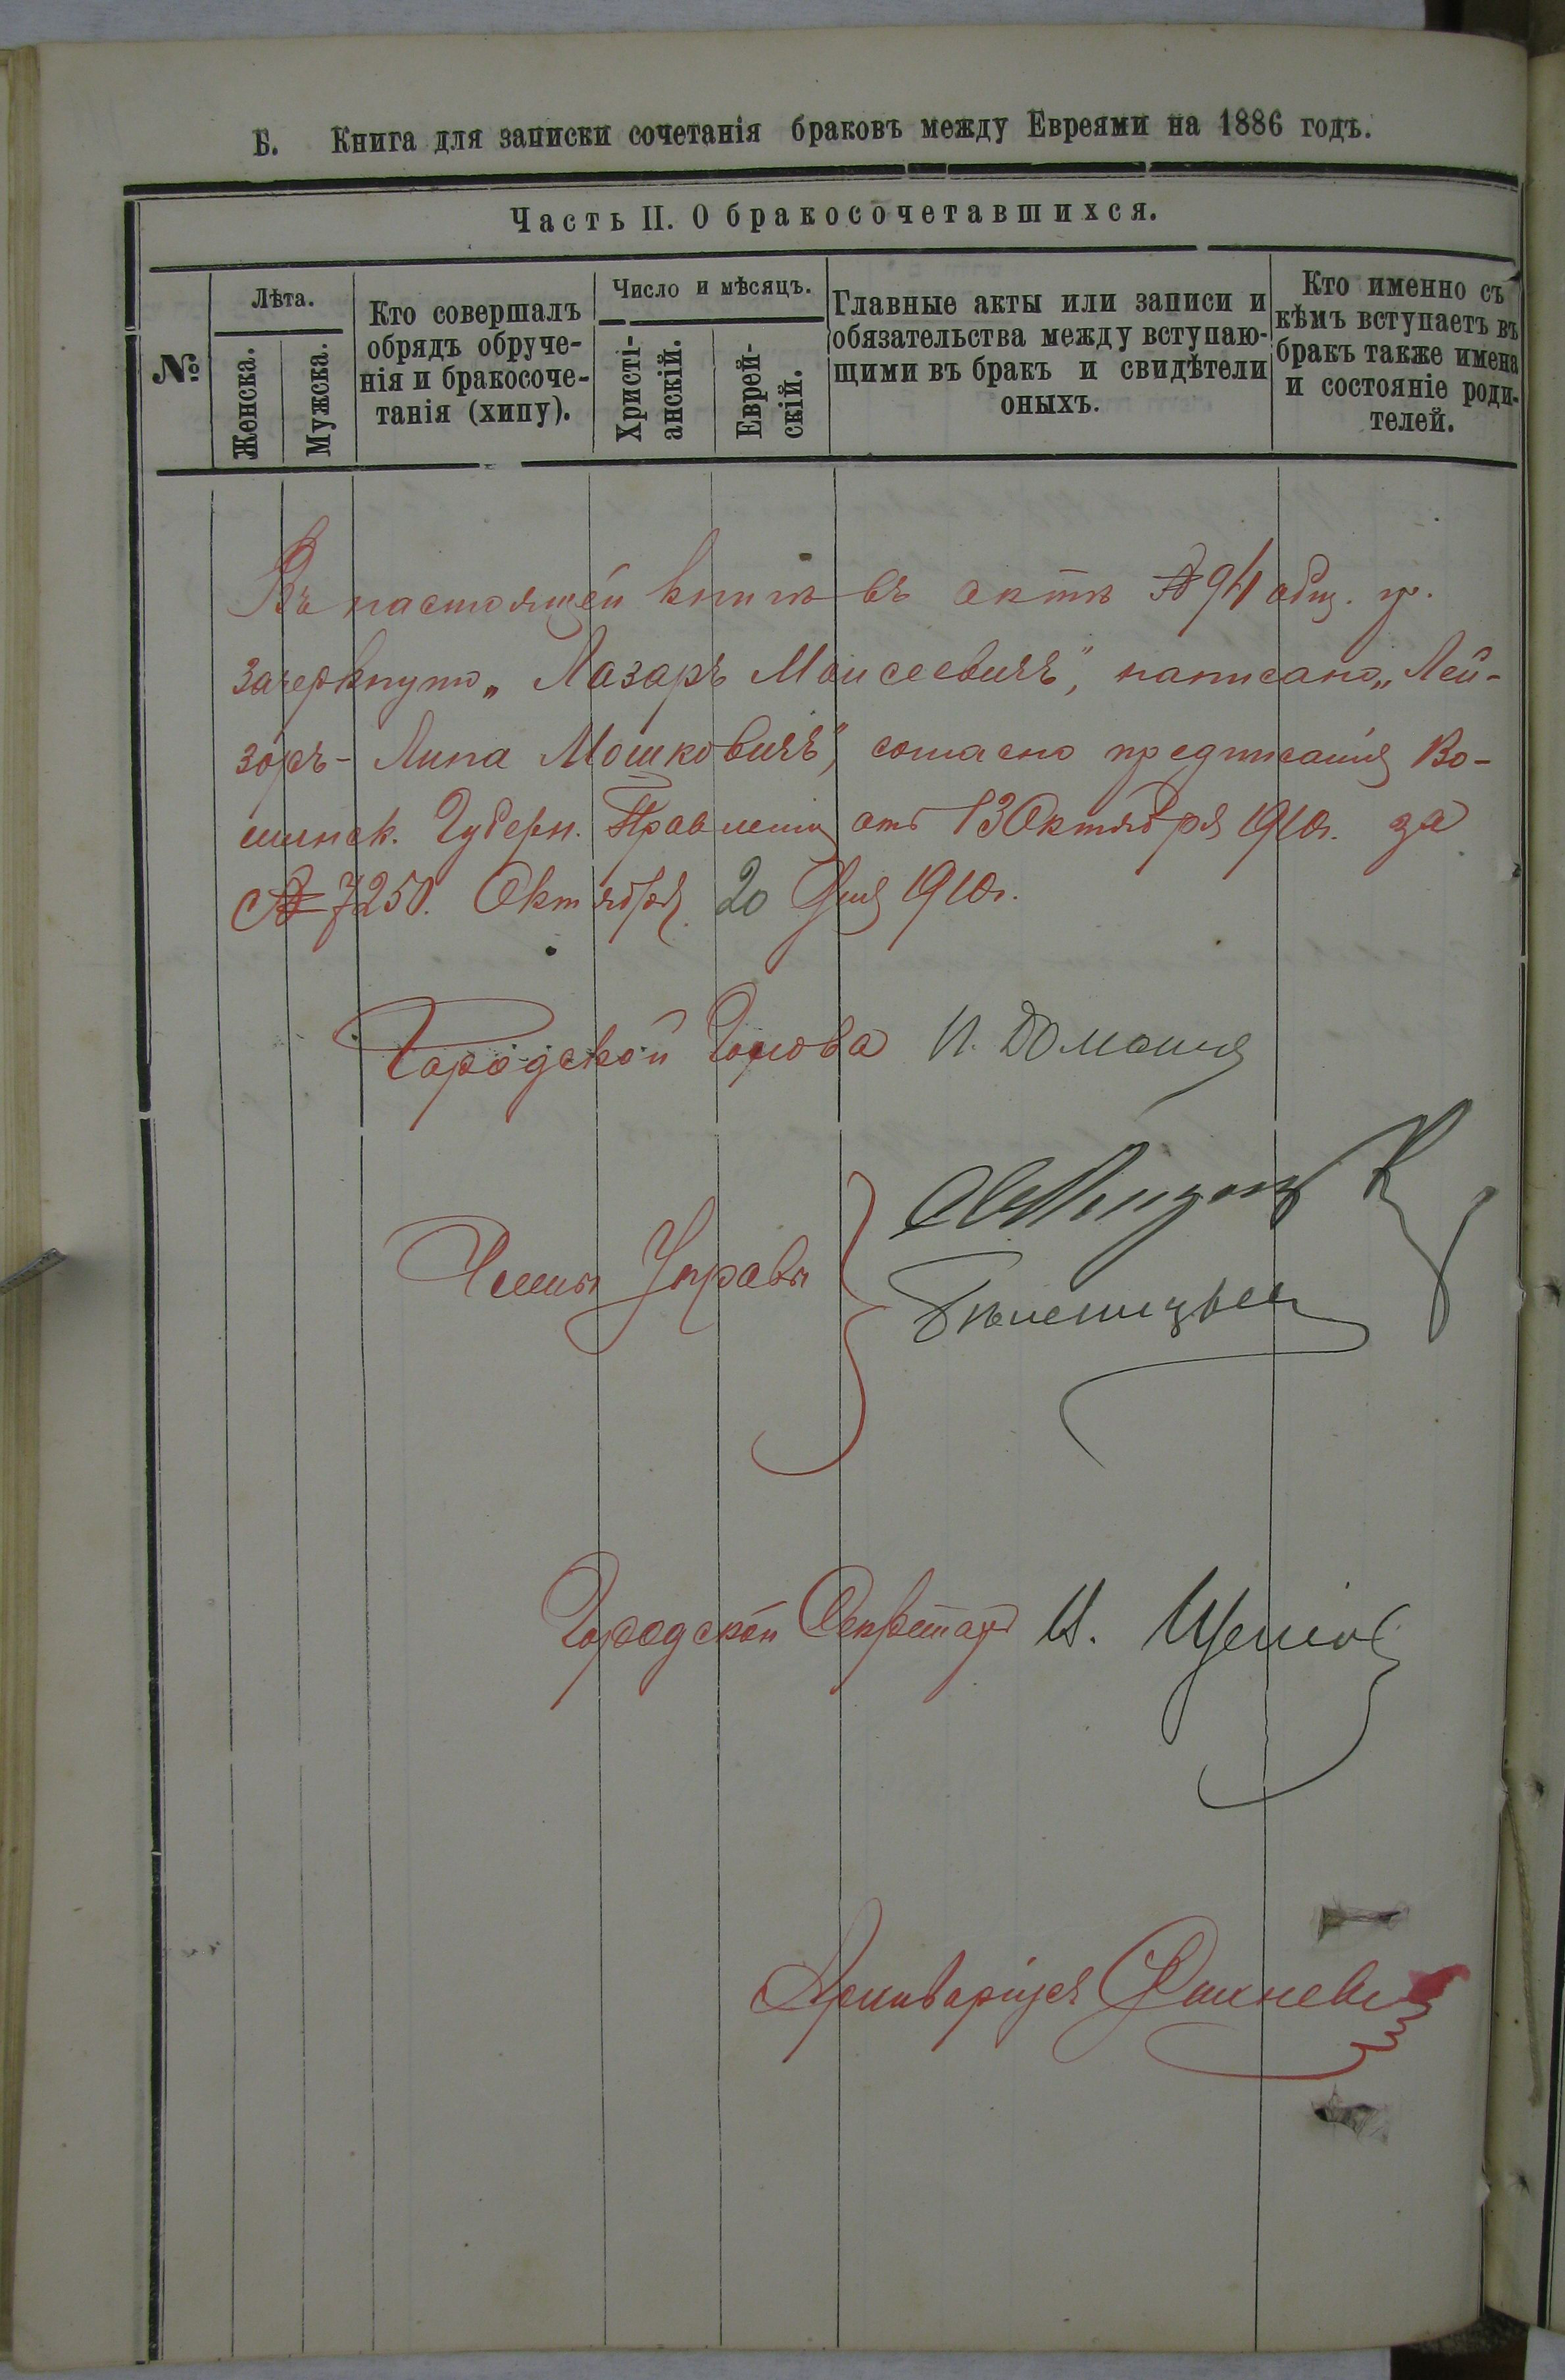 Б. Книга для записки сочетанія браковъ между Евреями на 1886 годъ.
Часть II. О бракосочетавшихся.
№
Лѣта.
Женска.
Мужска.
Кто совершалъ
обрядъ обруче-
нія и бракосоче-
танія (хипу).
Число и мѣсяцъ.
Христі-
анскій.
Еврей-
скій.
Главные акты или записи и
обязательства между вступаю-
щими въ бракъ и свидѣтели
оныхъ.
Кто именно съ
кѣмъ вступаетъ въ
бракъ также имена
и состояніе роди-
телей.
Въ настоящей книгѣ въ актѣ №94 общ. гр.
зачеркнуто „Лазаръ Моисеевичъ", написано „Лей-
зоръ-Липа Мошковичъ", согласно предписанія Во-
лынск. Губерн. Правленія отъ 13 Октября 1910г. за
№ 7250. Октября 20 дня 1910г.
Городской Голова И.
Члены Управы
Городской Секретарь И.
Архиваріусъ